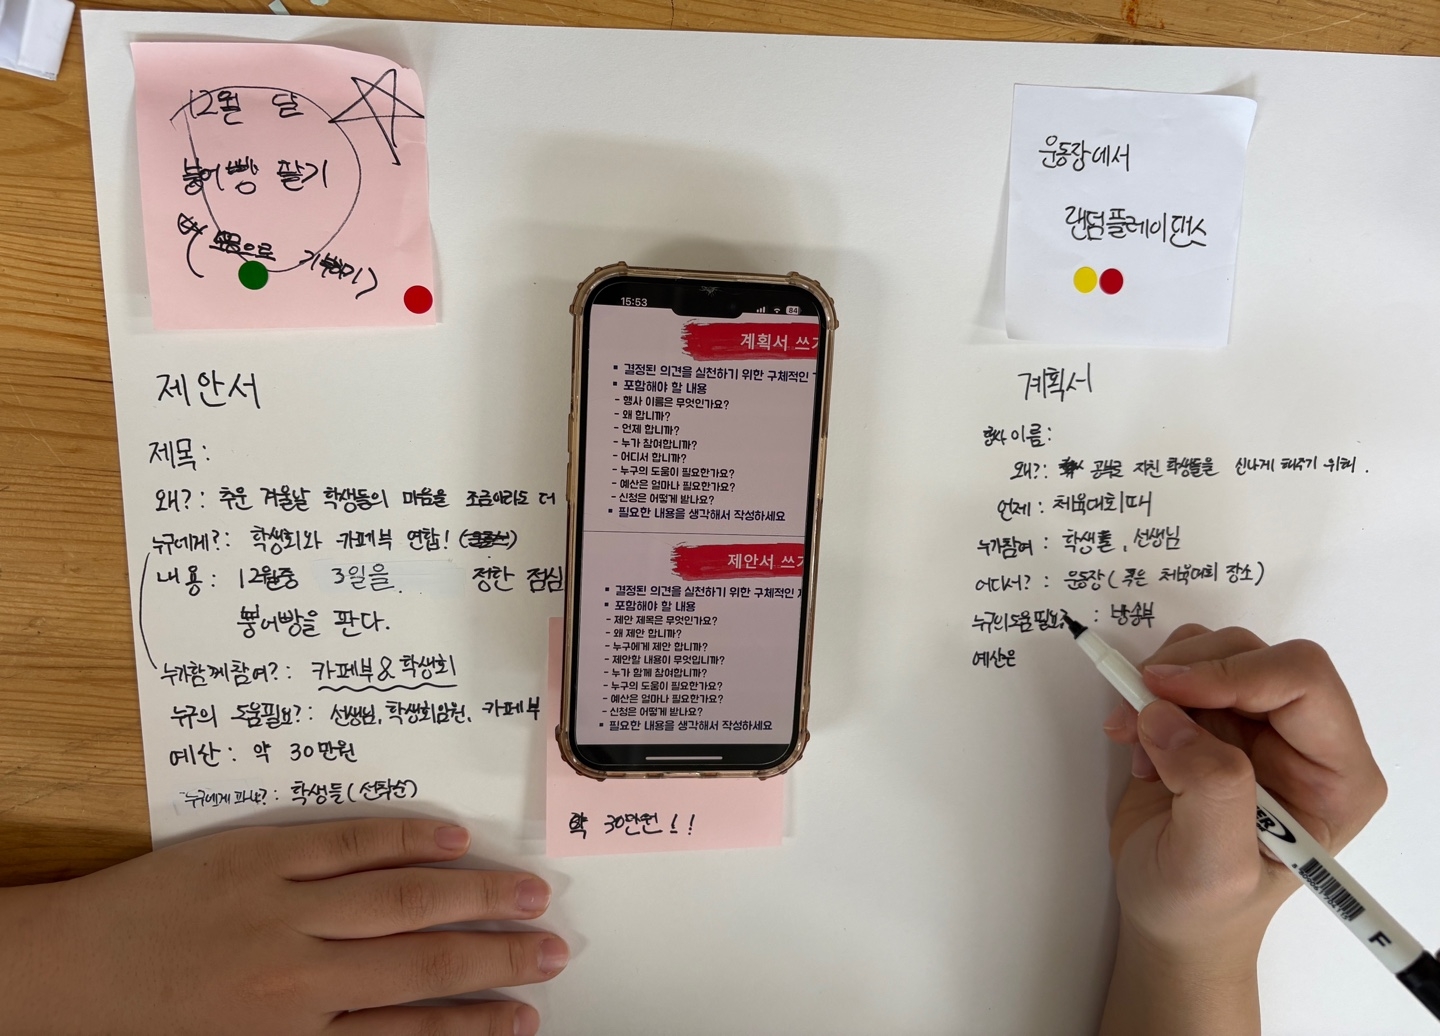 12월 달
붕어빵 팔기
기부하기)
운동장에서
랜덤플레이댄스
제안서
제목:
왜?: 추운 겨울날 학생들의 마음을 조금이라도 더
누구에게?: 학생회와 카페부 연합!
내용: 12월중 3일을 정한 점심
붕어빵을 판다.
누가함께참여?: 카페부&학생회
누구의 도움필요?: 선생님, 학생회임원, 카페부
예산: 약 30만원
누구에게 파나?: 학생들(선착순)
약 30만원!!
15:53
84
계획서 쓰기
▪ 결정된 의견을 실천하기 위한 구체적인
▪ 포함해야 할 내용
- 행사 이름은 무엇인가요?
- 왜 합니까?
- 언제 합니까?
- 누가 참여합니까?
- 어디서 합니까?
- 누구의 도움이 필요한가요?
- 예산은 얼마나 필요한가요?
- 신청은 어떻게 받나요?
▪ 필요한 내용을 생각해서 작성하세요
제안서 쓰기
▪ 결정된 의견을 실천하기 위한 구체적인
▪ 포함해야 할 내용
- 제안 제목은 무엇인가요?
- 왜 제안 합니까?
- 누구에게 제안 합니까?
- 제안할 내용이 무엇입니까?
- 누가 함께 참여합니까?
- 누구의 도움이 필요한가요?
- 예산은 얼마나 필요한가요?
- 신청은 어떻게 받나요?
▪ 필요한 내용을 생각해서 작성하세요
계획서
행사 이름:
왜?: 공부로 지친 학생들을 신나게 해주기 위해.
언제: 체육대회때
누가참여: 학생들, 선생님
어디서?: 운동장(혹은 체육대회 장소)
누구의도움필요?: 방송부
예산은
F